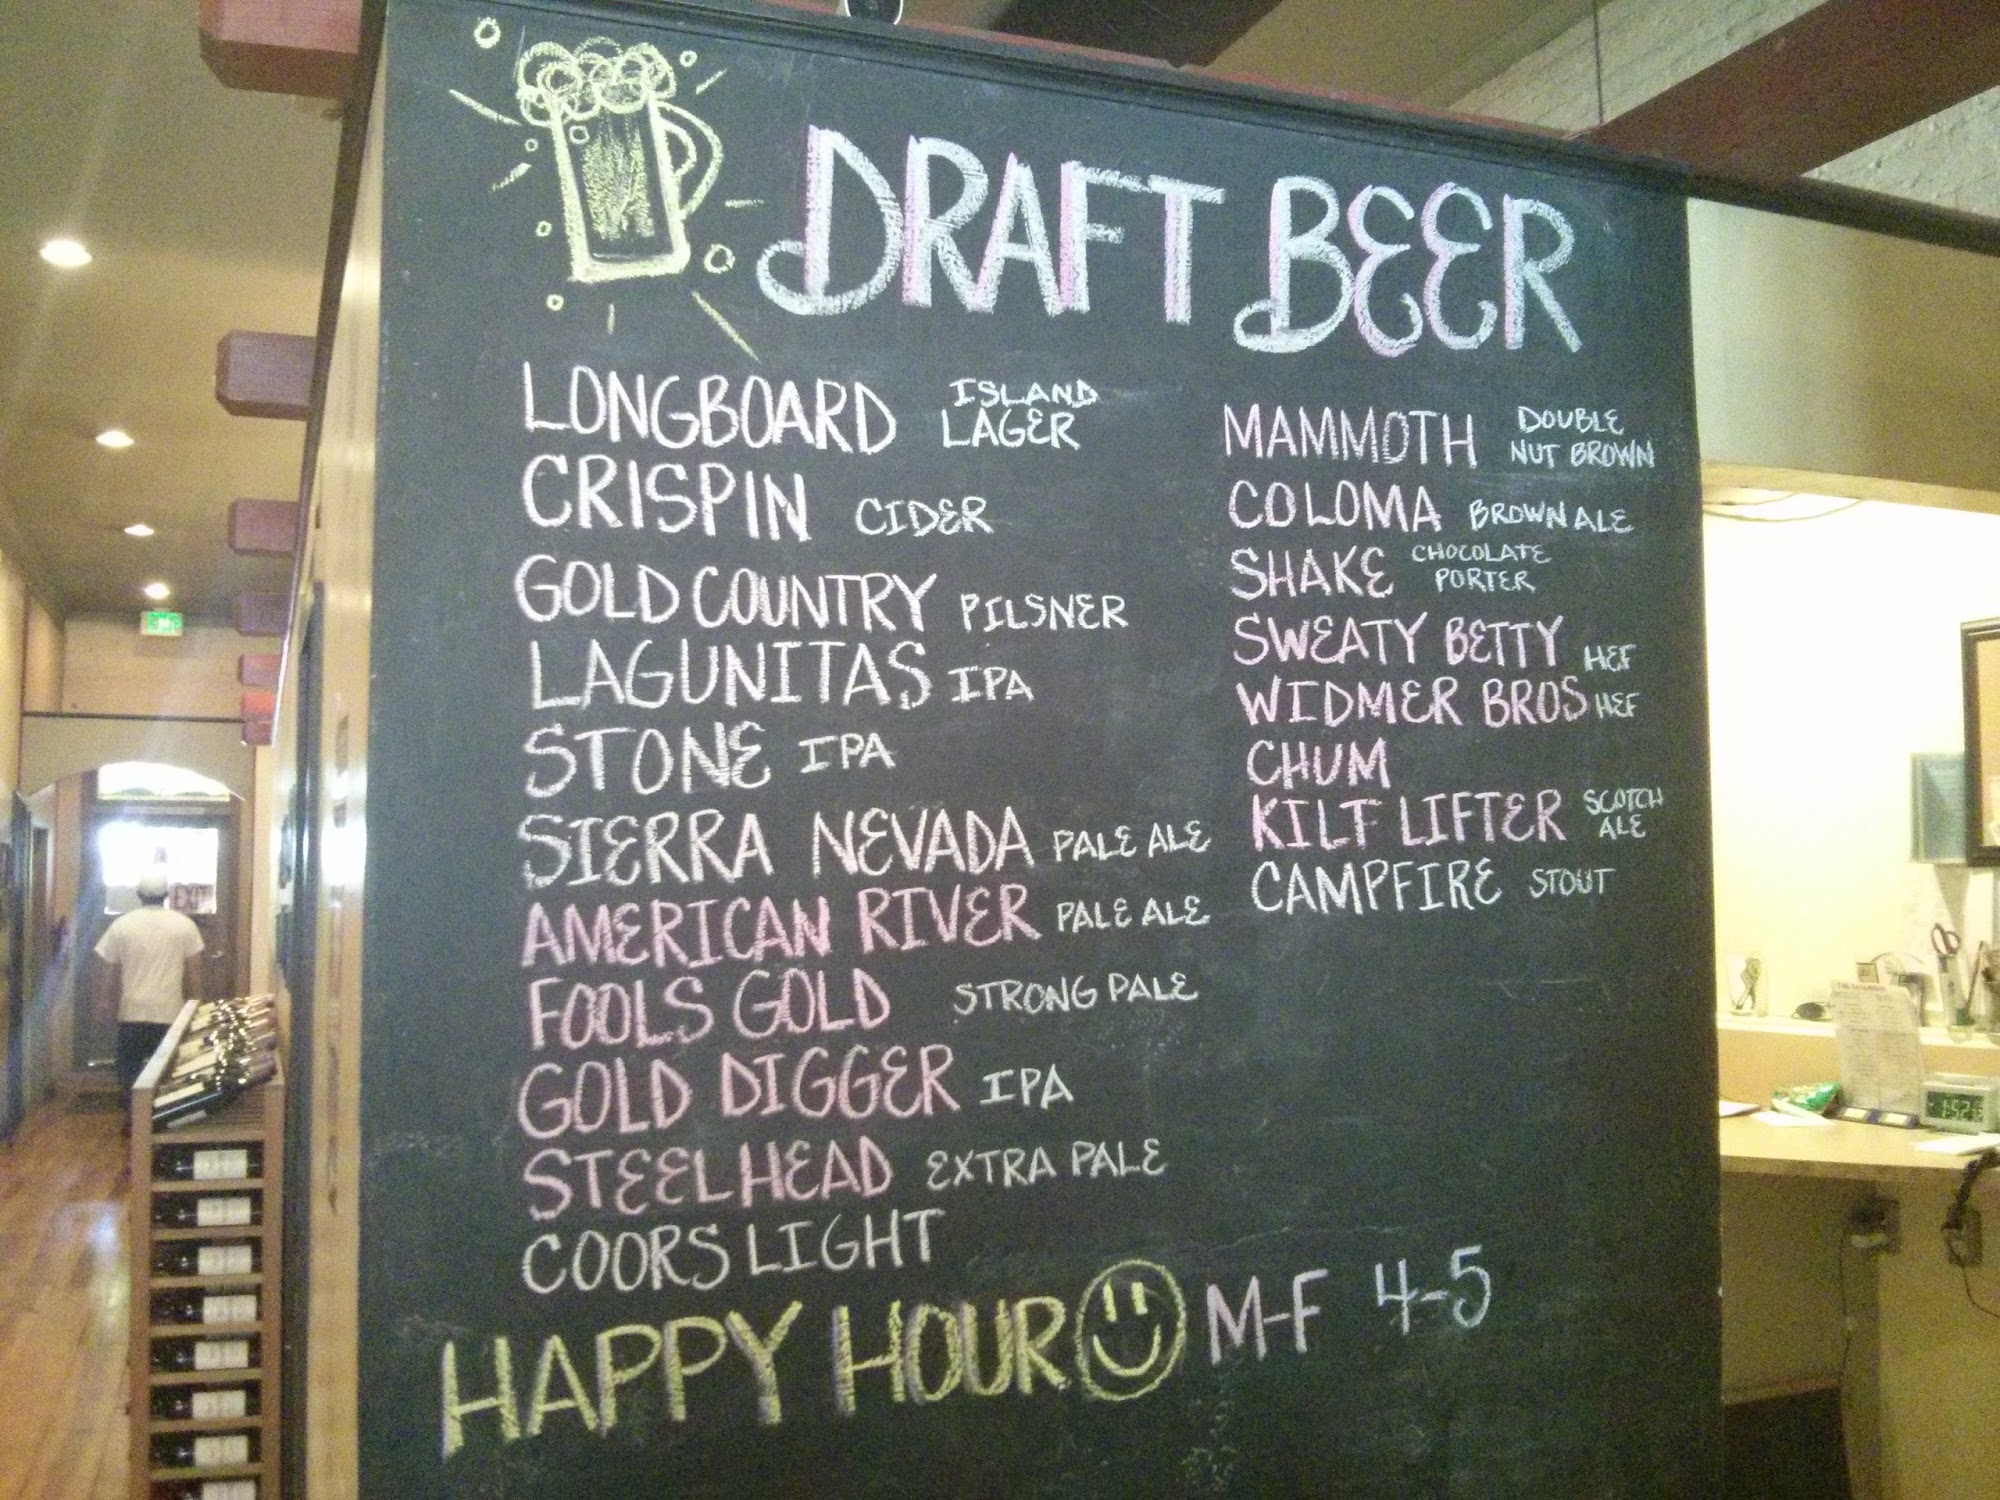 DRAFT BEER
LONGBOARD ISLAND LAGER
CRISPIN CIDER
GOLD COUNTRY PILSNER
LAGUNITAS IPA
STONE IPA
SIERRA NEVADA PALE ALE
AMERICAN RIVER PALE ALE
FOOLS GOLD STRONG PALE
GOLD DIGGER IPA
STEELHEAD EXTRA PALE
COORS LIGHT
MAMMOTH DOUBLE NUT BROWN
COLOMA BROWN ALE
SHAKE CHOCOLATE PORTER
SWEATY BETTY HEF
WIDMER BROS HEF
CHUM
KILT LIFTER SCOTCH ALE
CAMPFIRE STOUT
HAPPY HOUR M-F 4-5
EXIT